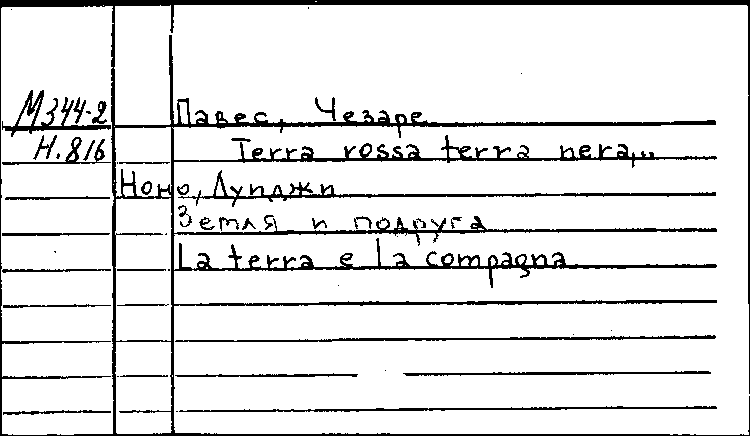 М344-2 Павес, Чезаре
Н.816 Terra rossa terra nera,..
Ноно, Луиджи
Земля и подруга
La terra e la compagna